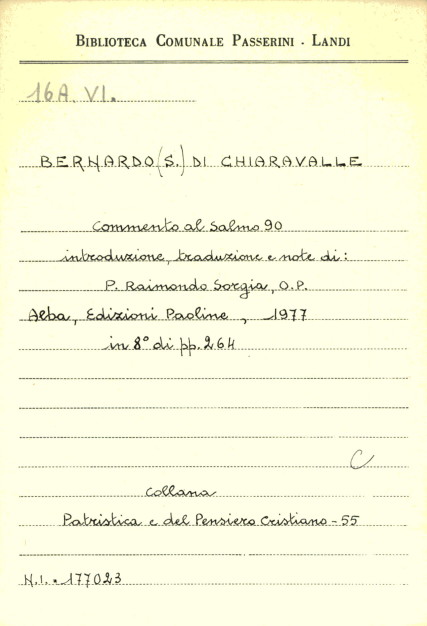 BIBLIOTECA COMUNALE PASSERINI - LANDI
16A. VI.
BERNARDO (S.) DI CHIARAVALLE
Commento al Salmo 90
introduzione, traduzione e note di:
P. Raimondo Sorgia, O.P.
Alba, Edizioni Paoline, 1977
in 8° di pp. 264
C
Collana
Patristica e del Pensiero Cristiano - 55
N.I. • 177023